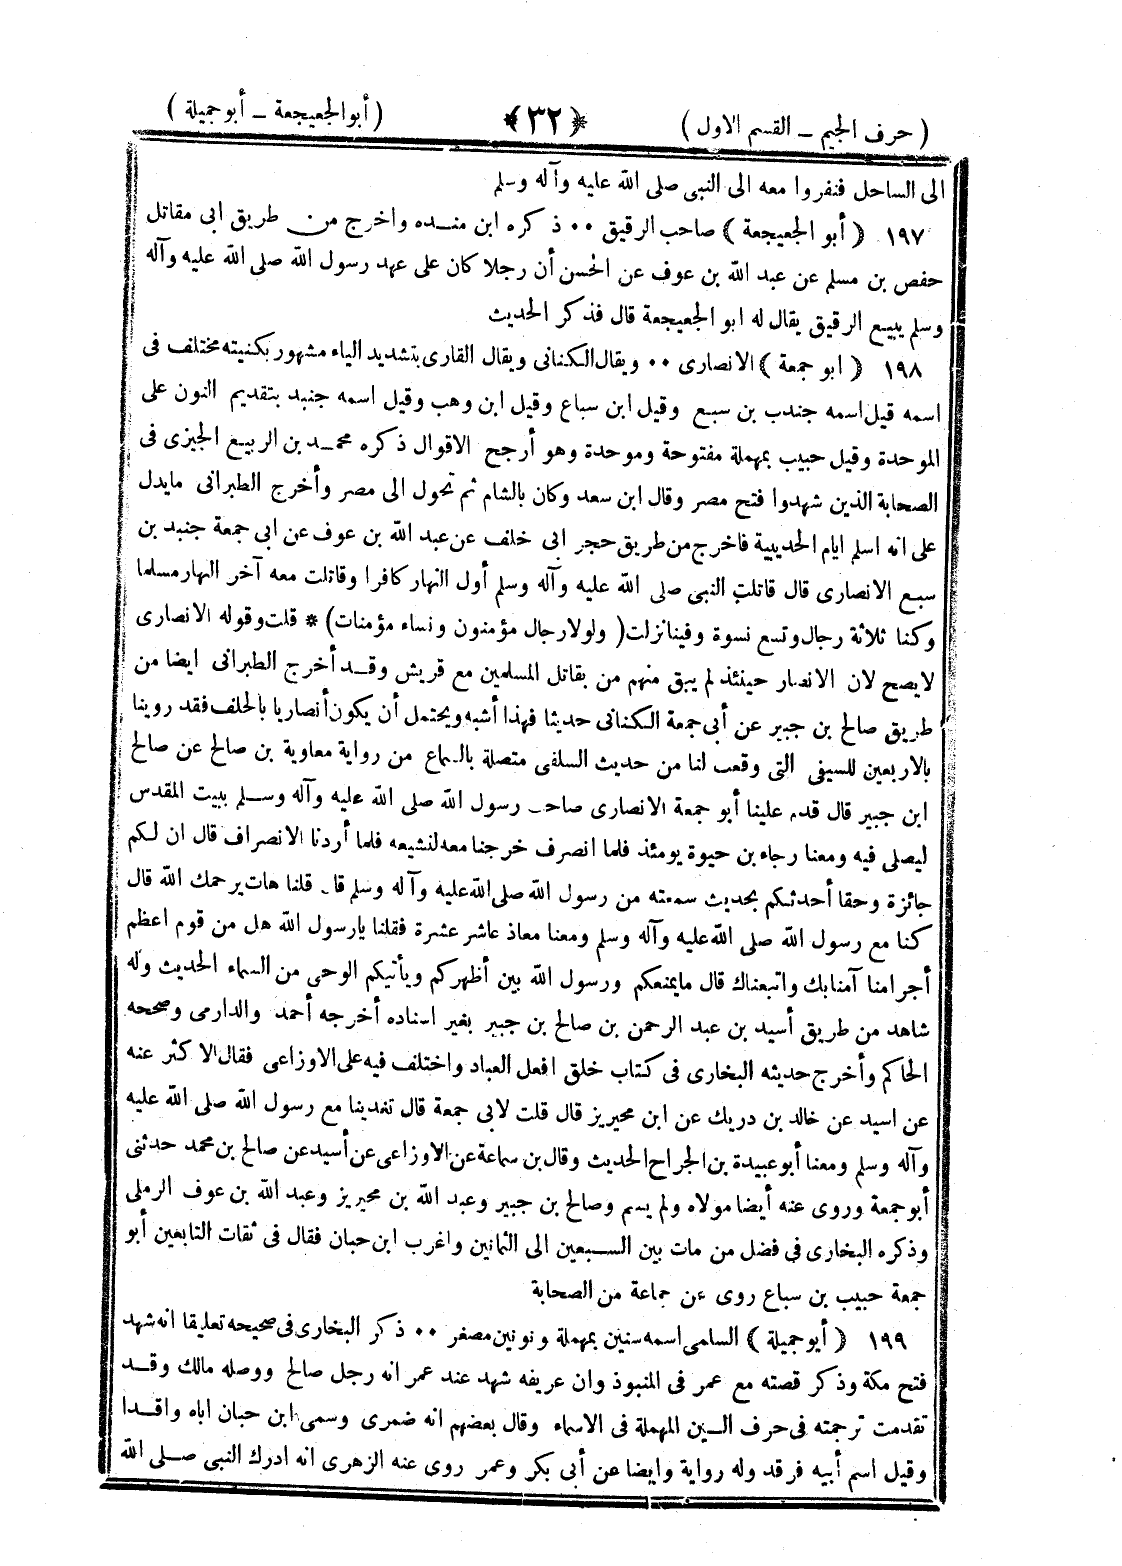 ( حرف الجيم – القسم الاول ) ﴿٣٢﴾ ( أبو الجعيجعة – أبو جميلة )
الى الساحل فنفروا معه الى النبى صلى الله عليه وآله وسلم
١٩٧ ( أبو الجعيجعة ) صاحب الرقيق ٠٠ ذكره ابن منده واخرج من طريق ابى مقاتل
حفص بن مسلم عن عبد الله بن عوف عن الحسن أن رجلا كان على عهد رسول الله صلى الله عليه وآله
وسلم يبيع الرقيق يقال له ابو الجعيجعة قال فذكر الحديث
١٩٨ ( ابو جمعة ) الانصارى ٠٠ ويقال الكنانى ويقال القارى بتشديد الياء مشهور بكنيته مختلف فى
اسمه قيل اسمه جندب بن سبع وقيل ابن سباع وقيل ابن وهب وقيل اسمه جنبد بتقديم النون على
الموحدة وقيل حبيب بمهملة مفتوحة وموحدة وهو أرجح الاقوال ذكره محمد بن الربيع الجيزى فى
الصحابة الذين شهدوا فتح مصر وقال ابن سعد وكان بالشام ثم تحول الى مصر وأخرج الطبرانى مايدل
على انه اسلم ايام الحديبية فاخرج من طريق حجر ابى خلف عن عبد الله بن عوف عن ابى جمعة جنبد بن
سبع الانصارى قال قاتلت النبى صلى الله عليه وآله وسلم أول النهار كافرا وقاتلت معه آخر النهار مسلما
وكنا ثلاثة رجال وتسع نسوة وفينا نزلت ( ولولا رجال مؤمنون ونساء مؤمنات ) * قلت وقوله الانصارى
لايصح لان الانصار حينئذ لم يبق منهم من يقاتل المسلمين مع قريش وقد أخرج الطبرانى ايضا من
طريق صالح بن جبير عن أبى جمعة الكنانى حديثا فهذا أشبه ويحتمل أن يكون أنصاريا بالحلف فقد روينا
بالاربعين للسيفى التى وقعت لنا من حديث السلفى متصلة بالسماع من رواية معاوية بن صالح عن صالح
ابن جبير قال قدم علينا أبو جمعة الانصارى صاحب رسول الله صلى الله عليه وآله وسلم ببيت المقدس
ليصلى فيه ومعنا رجاء بن حيوة يومئذ فلما انصرف خرجنا معه لنشيعه فلما أردنا الانصراف قال ان لكم
جائزة وحقا أحدثكم بحديث سمعته من رسول الله صلى الله عليه وآله وسلم قال قلنا هات يرحمك الله قال
كنا مع رسول الله صلى الله عليه وآله وسلم ومعنا معاذ عاشر عشرة فقلنا يارسول الله هل من قوم اعظم
أجرا منا آمنا بك واتبعناك قال مايمنعكم ورسول الله بين أظهركم ويأتيكم الوحى من السماء الحديث وله
شاهد من طريق أسيد بن عبد الرحمن بن صالح بن جبير بغير اسناده أخرجه أحمد والدارمى وصححه
الحاكم وأخرج حديثه البخارى فى كتاب خلق افعل العباد واختلف فيه على الاوزاعى فقال الاكثر عنه
عن اسيد عن خالد بن دريك عن ابن محيريز قال قلت لابى جمعة قال تغدينا مع رسول الله صلى الله عليه
وآله وسلم ومعنا أبو عبيدة بن الجراح الحديث وقال بن سماعة عن الاوزاعى عن أسيد عن صالح بن محمد حدثنى
أبو جمعة وروى عنه أيضا مولاه ولم يسم وصالح بن جبير وعبد الله بن محيريز وعبد الله بن عوف الرملى
وذكره البخارى فى فضل من مات بين السبعين الى الثمانين واغرب ابن حبان فقال فى ثقات التابعين أبو
جمعة حبيب بن سباع روى عن جماعة من الصحابة
١٩٩ ( أبو جميلة ) السلمى اسمه سنين بمهملة ونونين مصغر ٠٠ ذكر البخارى فى صحيحه تعليقا انه شهد
فتح مكة وذكر قصته مع عمر فى المنبوذ وان عريفه شهد عند عمر انه رجل صالح ووصله مالك وقد
تقدمت ترجمته فى حرف السين المهملة فى الاسماء وقال بعضهم انه ضمرى وسمى ابن حبان اباه واقدا
وقيل اسم أبيه فرقد وله رواية وايضا عن أبى بكر وعمر روى عنه الزهرى انه ادرك النبى صلى الله